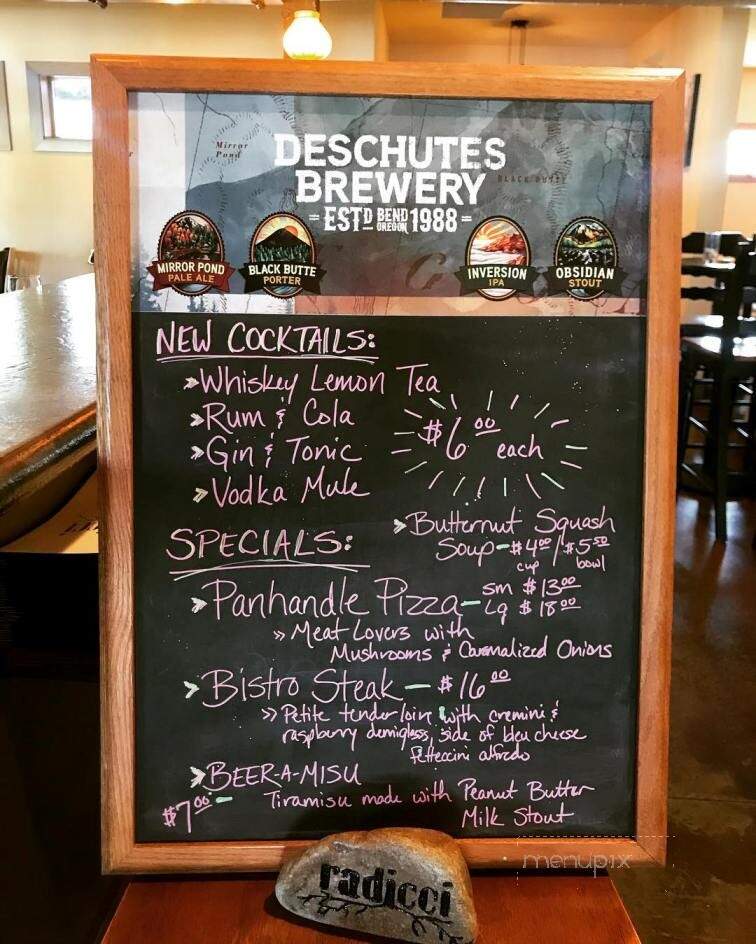 Mirror
Pond
DESCHUTES
BREWERY
BLACK BUTTE
ESTD BEND OREGON 1988
MIRROR POND
PALE ALE
BLACK BUTTE
PORTER
INVERSION
IPA
OBSIDIAN
STOUT
NEW COCKTAILS:
» Whiskey Lemon Tea
» Rum & Cola
» Gin & Tonic
» Vodka Mule
$6.00 each
SPECIALS:
» Butternut Squash
Soup - $4.00 / $5.50
cup bowl
» Panhandle Pizza - sm $13.00
Lg $18.00
» Meat Lovers with
Mushrooms & Carmalized Onions
» Bistro Steak - $16.00
» Petite tenderloin with cremini &
raspberry demiglass, side of bleu cheese
fetteccini alfredo
» BEER-A-MISU
$7.00 - Tiramisu made with Peanut Butter
Milk Stout
menupix
radicci